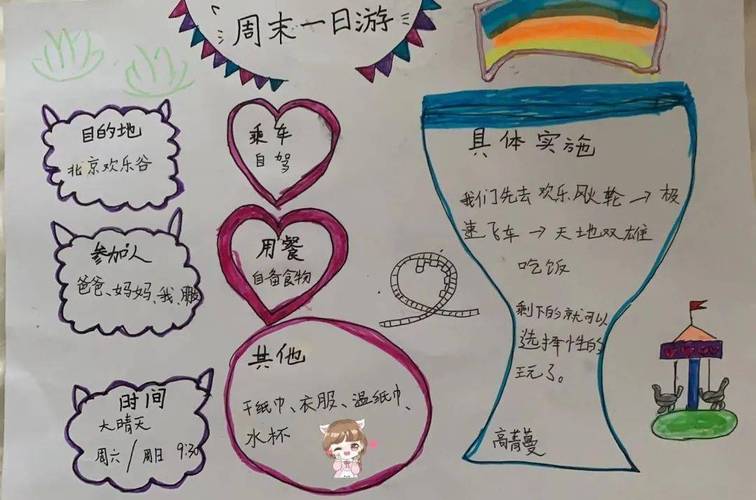 周末一日游
目的地
北京欢乐谷
乘车
自驾
参加人
爸爸、妈妈、我、
用餐
自备食物
时间
大晴天
周六/周日 9:30
其他
干纸巾、衣服、湿纸巾、
水杯
具体实施
我们先去欢乐风火轮→极
速飞车→天地双雄
吃饭
剩下的就可以
选择性的
玩了。